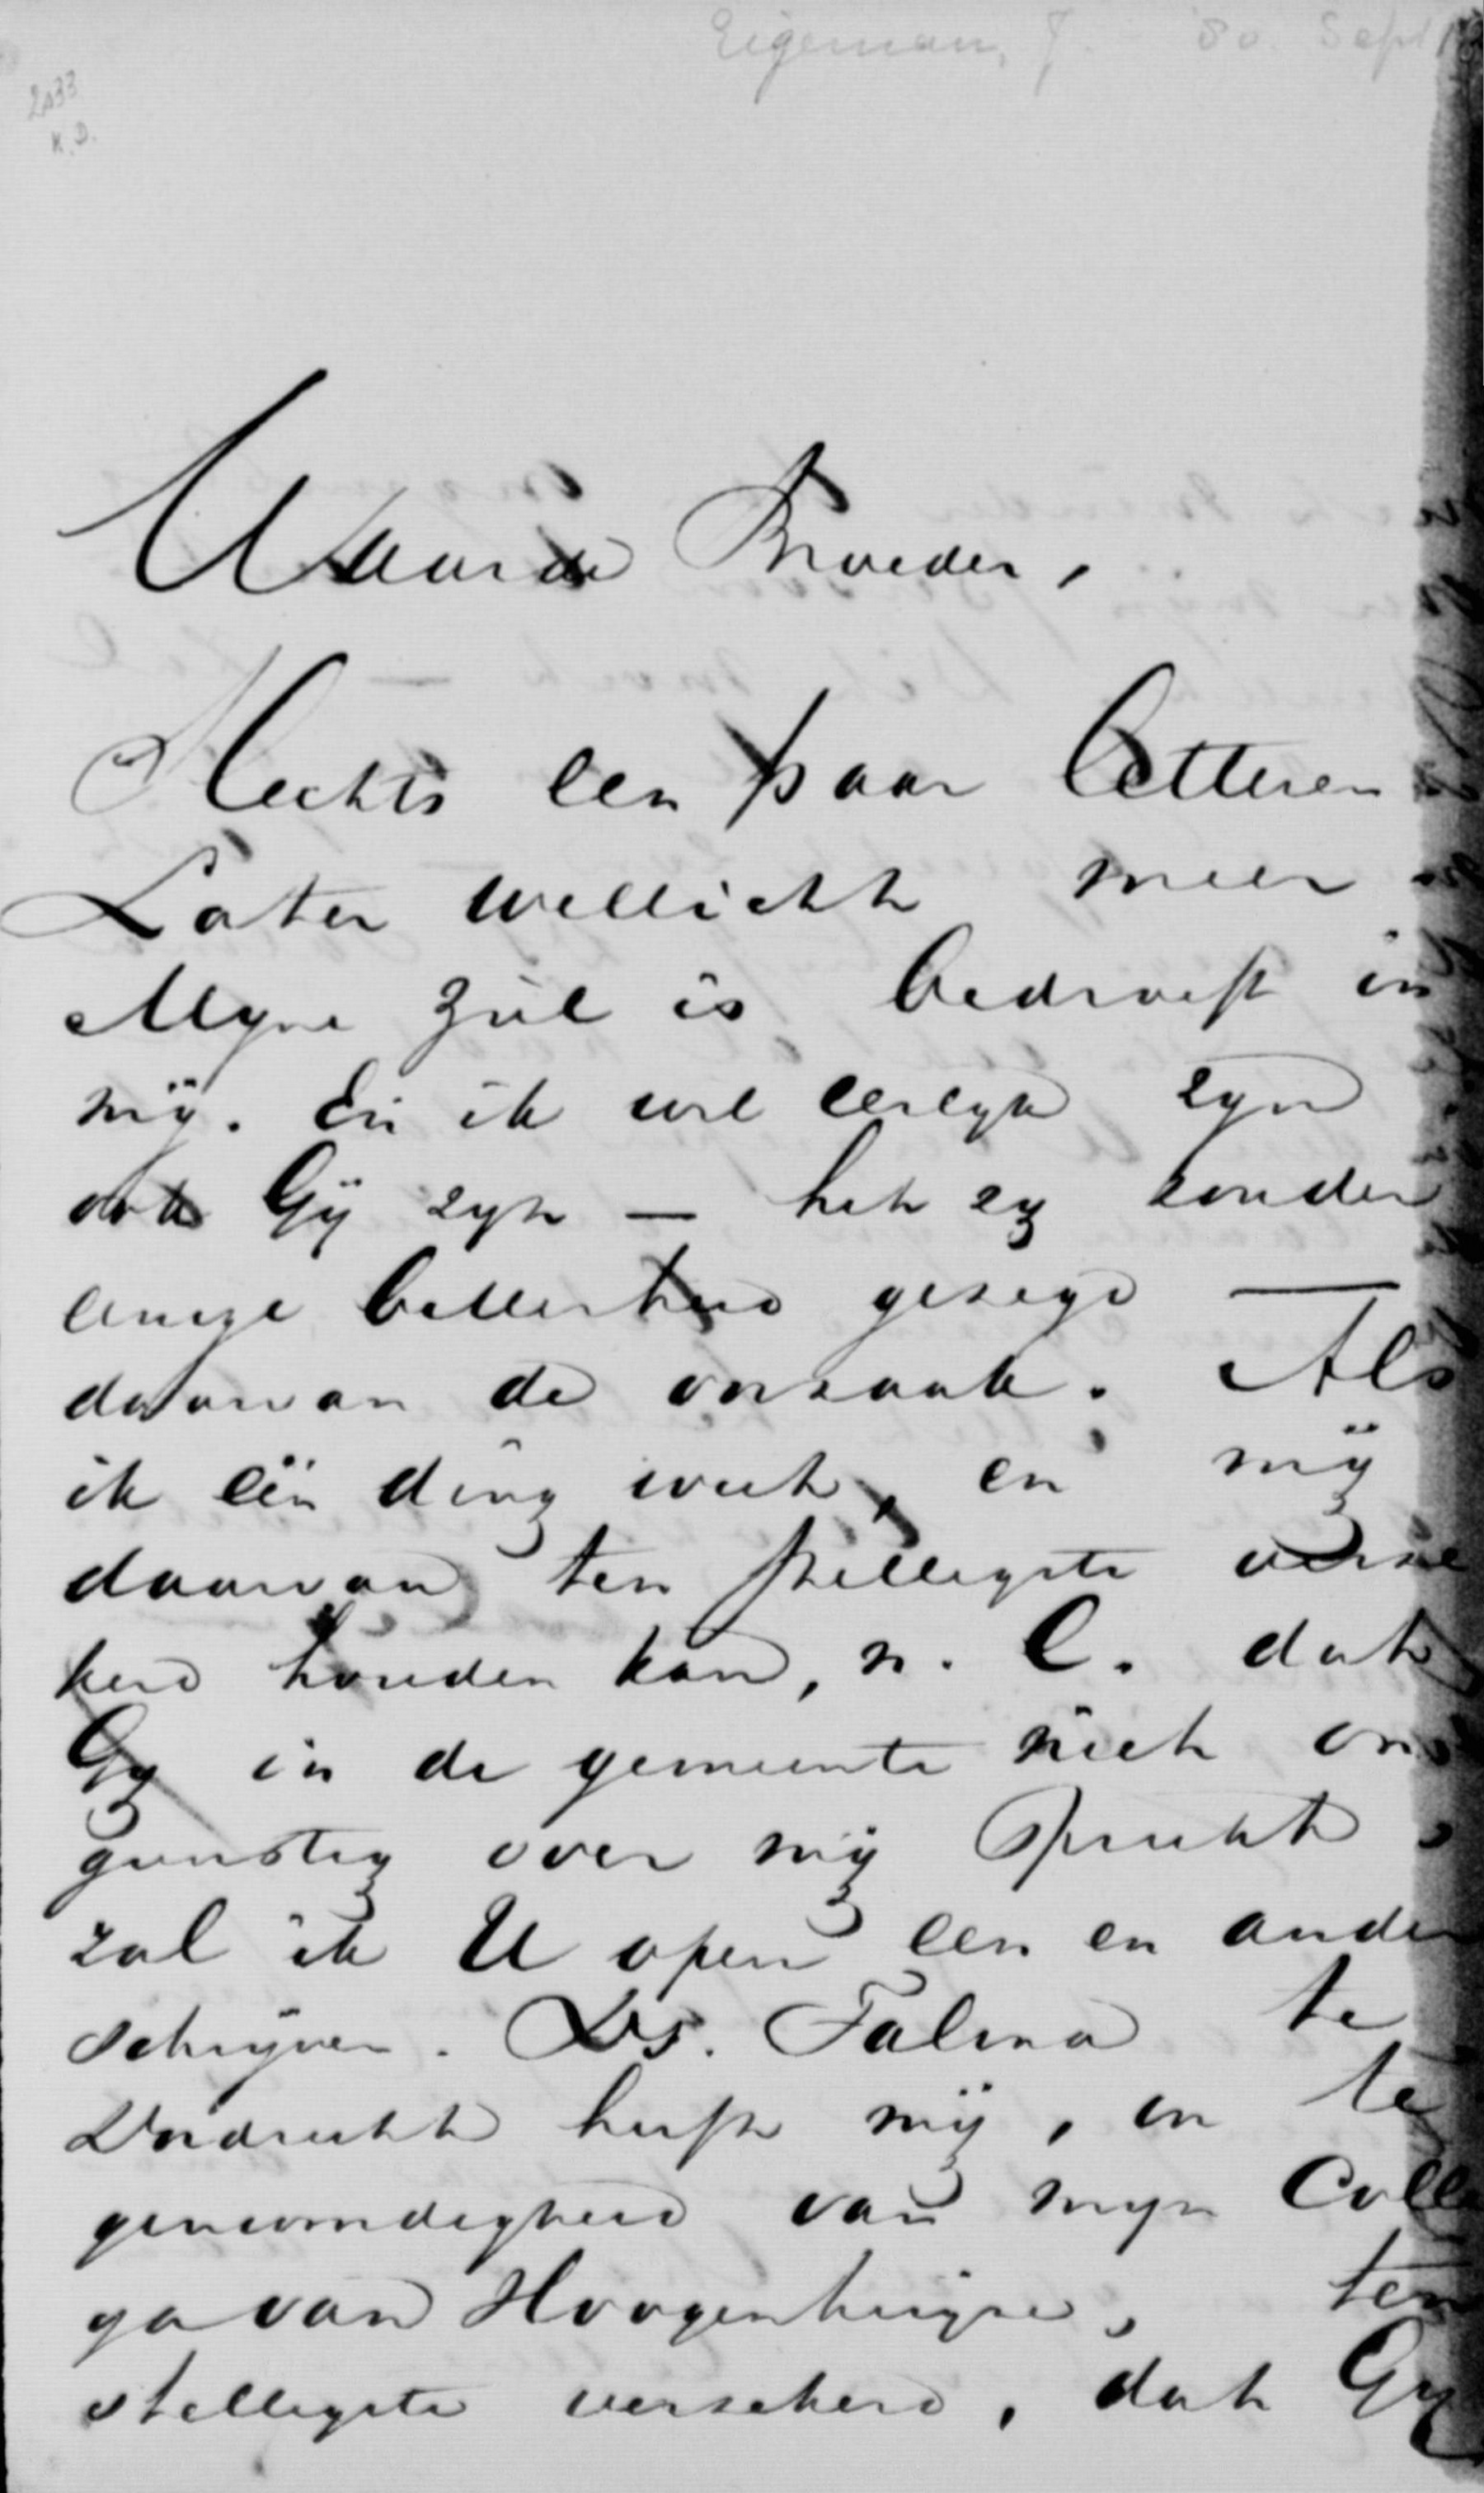 Eigeman, J. - 30. Sept
2033
K.D.
Waarde Broeder,
Slechts een paar letteren
Later wellicht meer
Myne ziel is bedroeft in
mÿ. En ik wil eerlyk zyn
ook Gÿ zyt — het zy zonder
eenige bitterheid gezegd —
daarvan de oorzaak. Als
ik één ding weet, en mÿ
daarvan ten stelligste verze
kerd houden kan, n. l. dat
Gy in de gemeente niet on
gunstig over mÿ spreekt,
zal ik U open een en ander
schryven. Ds. Talma te
Dordrecht heeft mÿ, in te
genwoordigheid van myn Colle
ga van Hoogenhuyze, ten
stelligste verzekerd, dat Gy